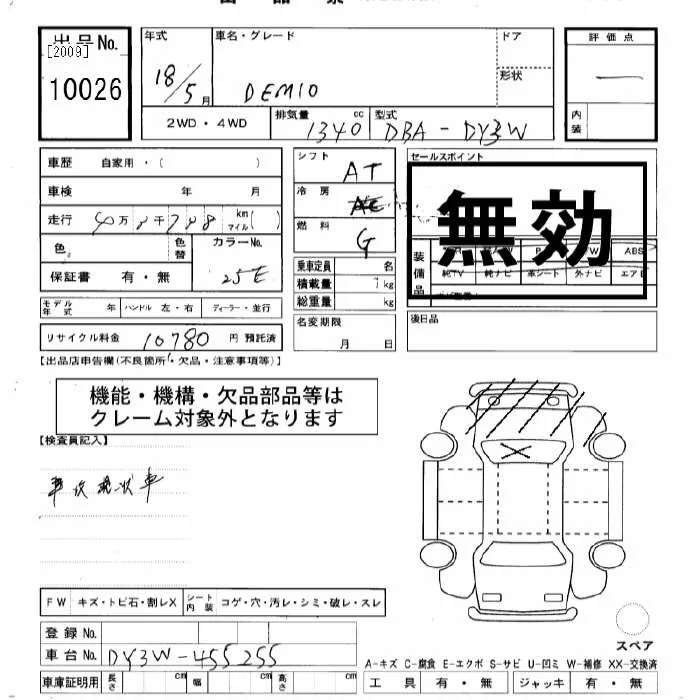 出品No.
[2009]
10026
年式
18/5月
車名・グレード
DEMIO
ドア
形状
2WD・4WD
排気量
1340 cc
型式
DBA-DY3W
評価点
―
内装
車歴 自家用・( )
車検 年 月
走行 万 千 km マイル( )
色
色替
カラーNo.
25E
保証書 有・無
モデル年式 年
ハンドル 左・右
ディーラー・並行
リサイクル料金 10780 円 預託済
シフト AT
冷房 AC
燃料 G
乗車定員 名
積載量 kg
総重量 kg
名変期限
月 日
セールスポイント
無効
装備品
ABS
純TV 純ナビ 革シート 外ナビ
後日品
【出品店申告欄(不良箇所・欠品・注意事項等)】
機能・機構・欠品部品等は
クレーム対象外となります
【検査員記入】
FW キズ・トビ石・割レX
シート内装 コゲ・穴・汚レ・シミ・破レ・スレ
登録No.
車台No. DY3W-455255
車庫証明用 長さ cm 幅 cm 高さ cm
スペア
A-キズ C-腐食 E-エクボ S-サビ U-凹ミ W-補修 XX-交換済
工具 有・無 ジャッキ 有・無